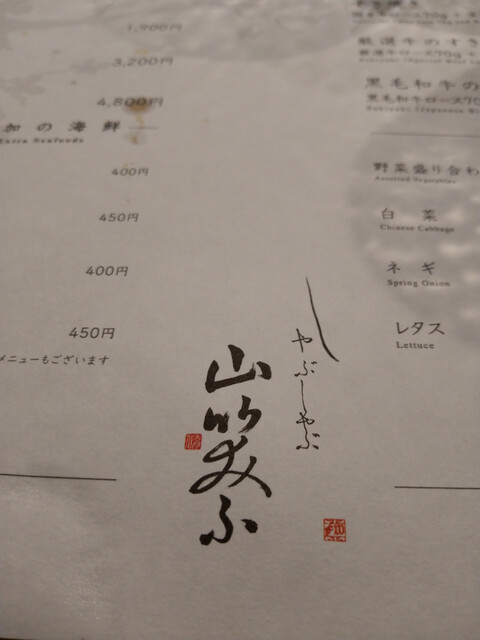 1,900円
3,200円
4,800円
加の海鮮
Extra Seafoods
400円
450円
400円
450円
メニューもございます
厳選牛のすき
厳選牛ロース70g +
黒毛和牛の
黒毛和牛ロース70
野菜盛り合わ
Assorted Vegetables
白菜
Chinese Cabbage
ネギ
Spring Onion
レタス
Lettuce
しゃぶしゃぶ
山笑ふ